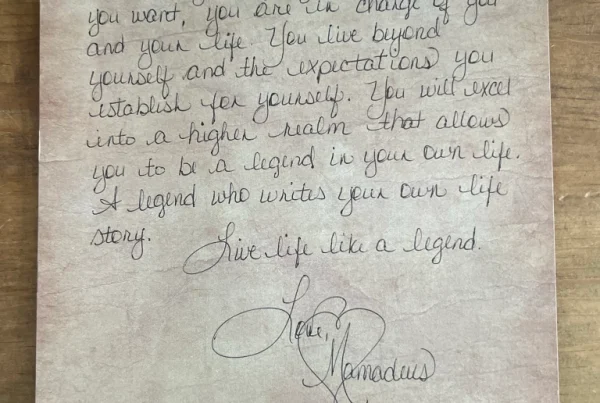 you want, you are in charge of you
and your life. You live beyond
yourself and the expectations you
establish for yourself. You will excel
into a higher realm that allows
you to be a legend in your own life.
A legend who writes your own life
story.
Live life like a legend.
Love,
Mamadeus